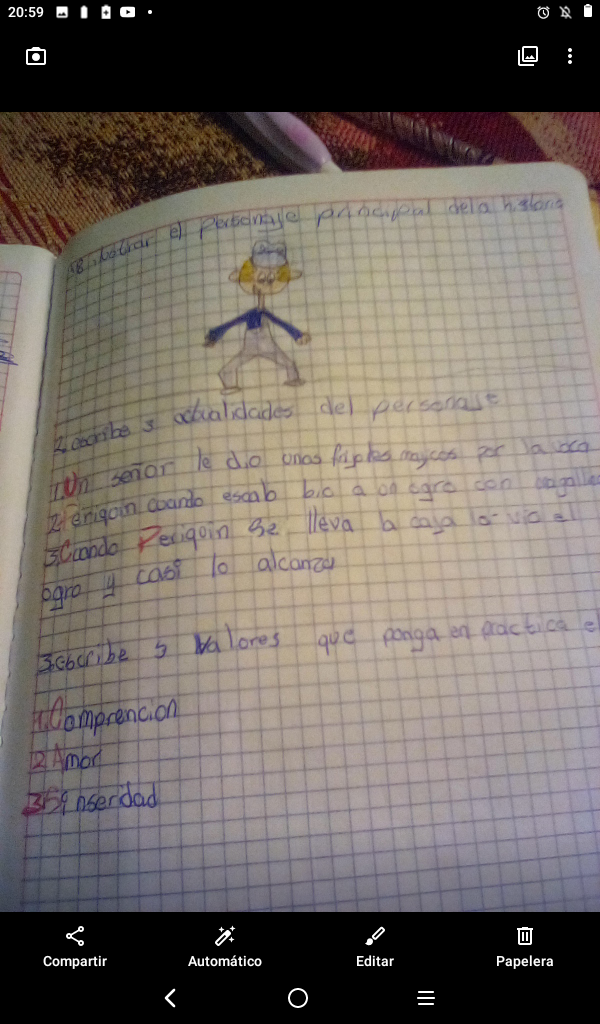 20:59
el personaje principal dela historia
2. escribe 3 actualidades del personaje
1. Un señor le dio unos frijoles majicos por la vaca
2 Periqoin cuando escab bio a un ogro con
3. Cuando Periqoin se lleva la caja lo vio el
ogro y casi lo alcanza
3. escribe 3 Valores que ponga en practica el
1. Comprencion
2 Amor
3 Sinseridad
Compartir
Automático
Editar
Papelera